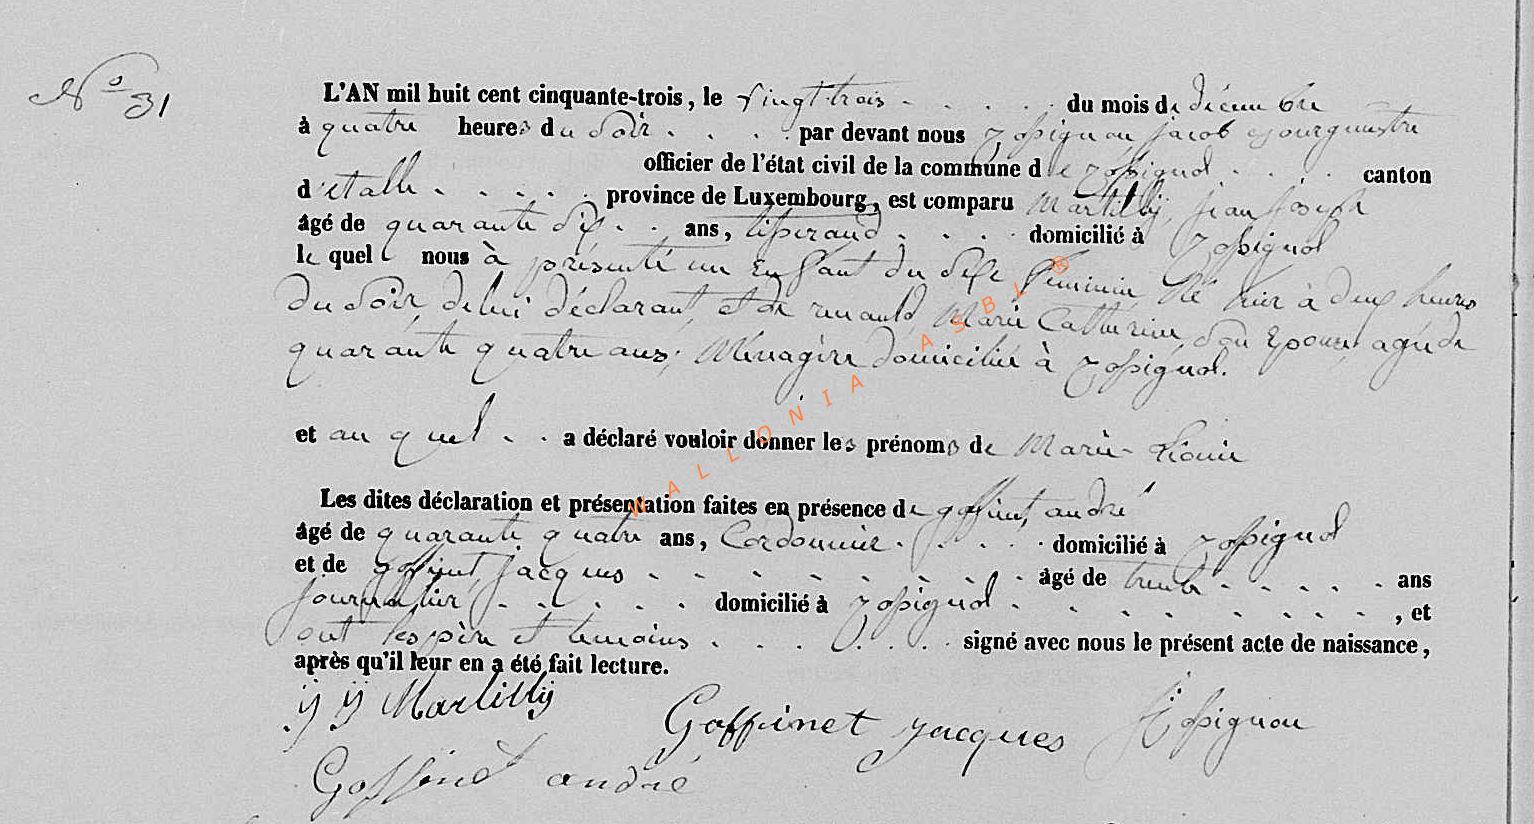 N° 31
L'AN mil huit cent cinquante-trois, le vingt trois . . . . . du mois de décembre
à quatre heures du soir . . . . par devant nous jacob Bourgmestre
officier de l'état civil de la commune de . . . . canton
d'etalle . . . . . province de Luxembourg, est comparu Martilly jean joseph
âgé de quarante dix . . ans, tisserand . . . . domicilié à
le quel nous à présenté un Enfant du sexe féminin né hier à deux heures
du soir, de lui déclarant et de renauld Marie Catherine, son Epouse, agée de
quarante quatre ans, Ménagère domiciliée à
et au quel . . a déclaré vouloir donner les prénoms de Marie
Les dites déclaration et présentation faites en présence de goffinet, andré
âgé de quarante quatre ans, Cordonnier . . . . . domicilié à
et de goffinet jacques . . . . . . . . âgé de trente . . . . . ans
journalier . . . . . domicilié à . . . . . . . . , et
ont les père et temoins . . . . . . signé avec nous le présent acte de naissance,
après qu'il leur en a été fait lecture.
J J Martilly
Goffinet Jacques
Goffinet andré
WALLONIA ASBL ®